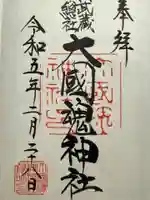 奉拝
武蔵
総社
大國魂神社
令和五年二月二十八日